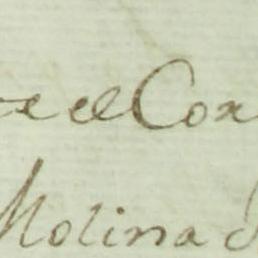 el Cor
Molina d